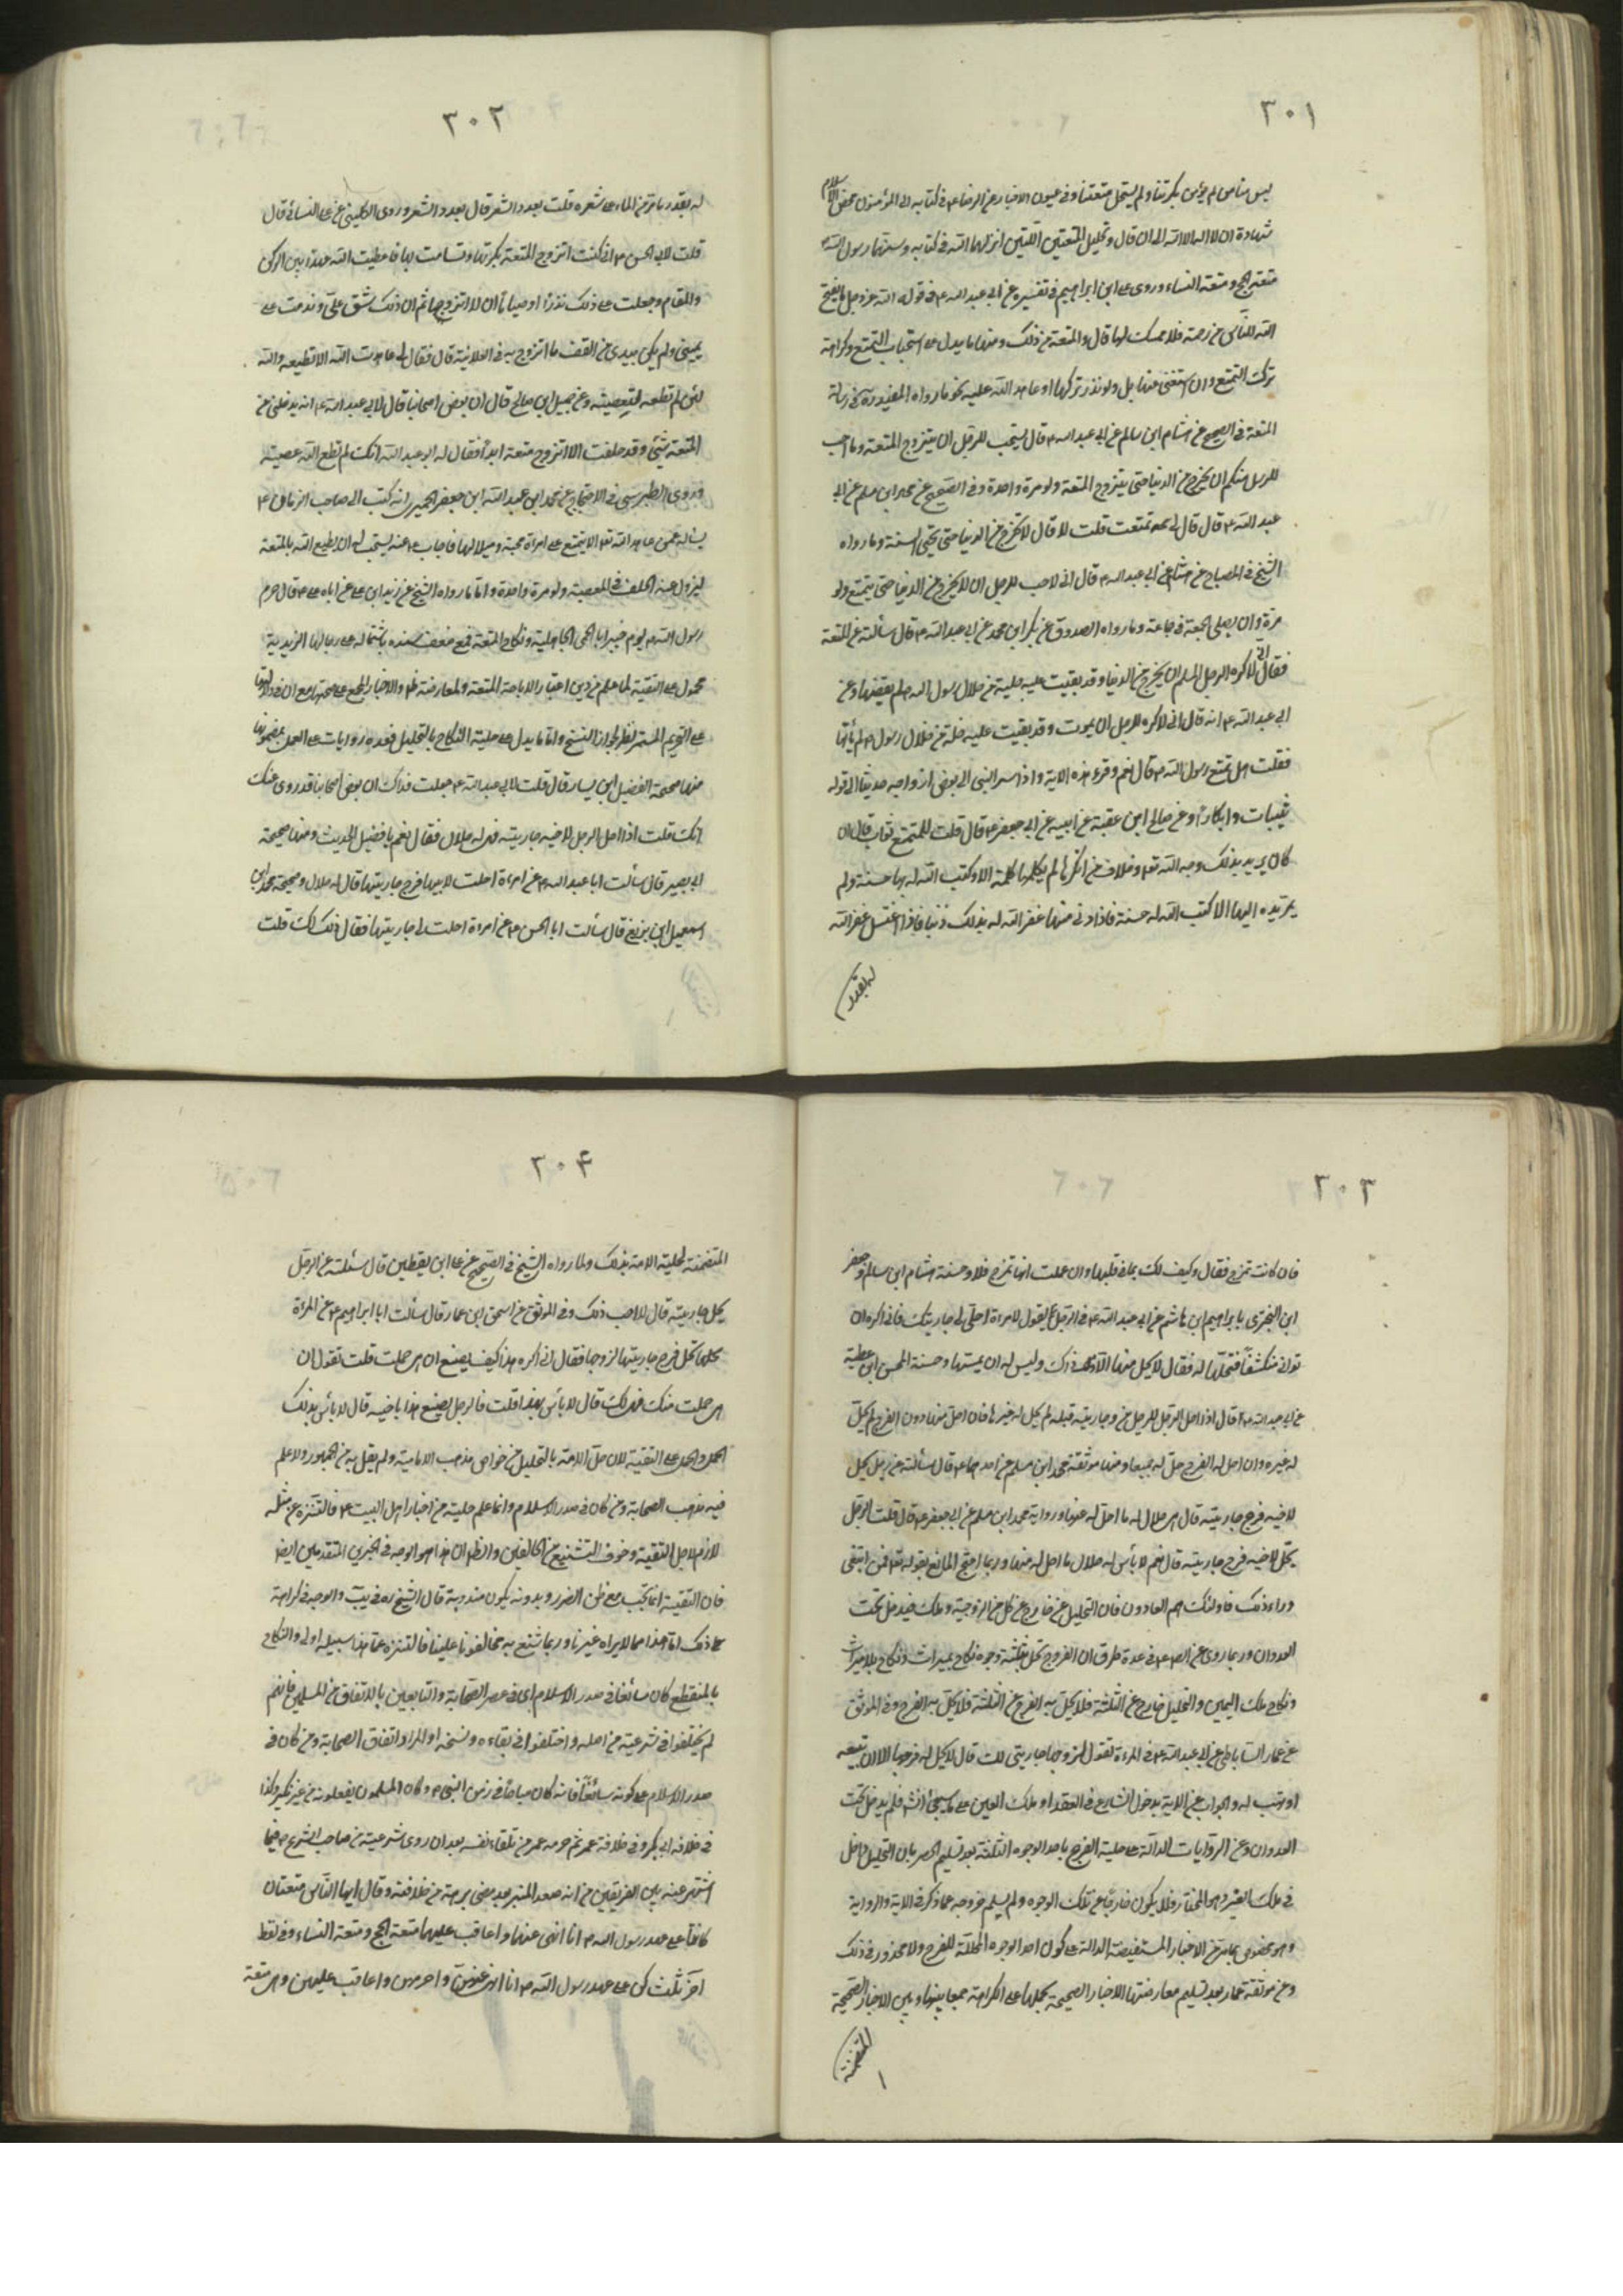 ٣٠١
ليس منا من لم يؤمن بكرتنا ولم يستحل متعتنا وفى عيون الاخبار عن الرضا ع فى كتابه الى المأمون محض الاسلام
شهادة ان لا اله الا الله الى ان قال وتحليل المتعتين اللتين انزلهما الله فى كتابه وسنهما رسول الله ص
متعة الحج ومتعة النساء وروى على ابن ابراهيم فى تفسيره عن ابى عبد الله ع فى قول الله عز وجل ما يفتح
الله للناس من رحمة فلا ممسك لها قال والمتعة من ذلك ومنها ما يدل على استحباب التمتع وكراهة
ترك التمتع وان استغنى عنها بل ولو نذر تركها او عاهد الله عليه نحو ما رواه المفيد ره فى رسالة
المتعة فى الصحيح عن هشام ابن سالم عن ابى عبد الله ع قال يستحب للرجل ان يتزوج المتعة وما احب
للرجل منكم ان يخرج من الدنيا حتى يتزوج المتعة ولو مرة واحدة وفى الصحيح عن محمد ابن مسلم عن ابى
عبد الله ع قال قال لى تمتعت قلت لا قال لا تخرج من الدنيا حتى تحيى السنة وما رواه
الشيخ فى المصباح عن هشام عن ابى عبد الله ع قال انى لاحب للرجل ان لا يخرج من الدنيا حتى يتمتع ولو
مرة وان يصلى الجمعة فى جماعة وما رواه الصدوق عن بكر ابن محمد عن ابى عبد الله ع قال سألته عن المتعة
فقال انى لاكره للرجل المسلم ان يخرج من الدنيا وقد بقيت عليه خلة من خلال رسول الله ص لم يقضها وعن
ابى عبد الله ع انه قال انى لاكره للرجل ان يموت وقد بقيت عليه خلة من خلال رسول ص لم يأتها
فقلت هل تمتع رسول الله ص قال نعم وقرء هذه الاية واذ اسر النبى الى بعض ازواجه حديثا الى قوله
ثيبات وابكارا وعن صالح ابن عقبة عن ابيه عن ابى جعفر ع قال قلت للمتمتع ثواب قال ان
كان يريد بذلك وجه الله تعه وخلافا من انكرها لم يكلمها كلمة الا وكتب الله له بها حسنة ولم
يمد يده اليها الا كتب الله له حسنة فاذا دنى منها غفر الله له بذلك ذنبا فاذا اغتسل غفر الله
له بقدر
٣٠٢
له بقدر ما مر من الماء على شعره قلت بعدد الشعر قال بعدد الشعر وروى الكلينى عن على السائى قال
قلت لابى الحسن ع انى كنت اتزوج المتعة فكرهتها وتشامت بها فاعطيت الله عهدا بين الركن
والمقام وجعلت على ذلك نذرا او صياما ان لا اتزوجها ثم ان ذلك شق على وندمت على
يمينى ولم يكن بيدى من القوة ما اتزوج به فى العلانية قال فقال لى عاهدت الله الا تطيعه والله
لئن لم تطعه لتعصينه وعن جميل ابن صالح قال ان بعض اصحابنا قال لابى عبد الله ع انه يدخلنى من
المتعة شئ وقد حلفت الا اتزوج متعة ابدا فقال له ابو عبد الله انك لم تطع الله عصيته
وروى الطبرسى فى الاحتجاج عن محمد ابن عبد الله ابن جعفر الحميرى انه كتب الى صاحب الزمان ع
يسأله عمن عاهد الله تعه الا يتمتع على امرأة فاجاب ع عنه يستحب له ان يطيع الله بالمتعة
ليزول عنه الحلف فى المعصية ولو مرة واحدة واما ما رواه الشيخ عن زيد ابن على عن اباه على ع قال حرم
رسول الله ص يوم خيبر الحمر الاهلية ونكاح المتعة فمع ضعف سنده باشتماله على رجالها الزيدية
محمول على التقية لما علم من دين الاباحة المتعة ولمعارضته والاخبار المجمع على صحتها مع ان فى دلالتها
على التحريم المستمر نظر لجواز النسخ واما ما يدل على حلية النكاح بالتحليل فعدة روايات على العمل بمضمونها
منها صحيحة الفضيل ابن يسار قال قلت لابى عبد الله ع جعلت فداك ان بعض اصحابنا قد روى عنك
انك قلت اذا احل الرجل لاخيه جاريته فهى له حلال فقال نعم يا فضيل الحديث ومنها صحيحة
ابى بصير قال سألت ابا عبد الله ع عن امرأة احلت لابنها فرج جاريتها قال له حلال وصحيحة محمد ابن
اسمعيل ابن بزيع قال سألت ابا الحسن ع عن امرءة احلت لى جاريتها فقال ذلك لك قلت
٣٠٣
فان كانت تمزح فقال وكيف لك بما فى قلبها وان علمت انها تمزح فلا وحسنة هشام ابن سالم وحفص
ابن البخترى يا ابراهيم ابن هاشم عن ابى عبد الله ع فى الرجل يقول لامرأة احلى لى جاريتك فانى اكره ان
ترانى منكشفا فتحلها له فقال لا يحل منها الا ذاك وليس له ان يمسها وحسنة الحسن ابن عطية
عن ابى عبد الله ع قال اذا احل الرجل للرجل من جاريته قبلة لم يحل له غيرها فان احل منها دون الفرج لم يحل
له غيره وان احل له الفرج حل له جميعها ومنها موثقة محمد ابن مسلم عن احدهما ع قال سألته عن رجل يحل
لاخيه فرج جاريته قال هى حلال له ما احل له منها ورواية محمد ابن مسلم عن ابى جعفر ع قال قلت الرجل
يحل لاخيه فرج جاريته قال نعم لا بأس له حلال ما احل له منها وربما احتج المانع بقوله تعه فمن ابتغى
وراء ذلك فاولئك هم العادون فان التحليل خارج عن كل من الزوجية وملك فيدخل تحت
العدوان وربما روى عن الصادق ع فى عدة طرق ان الفروج تحل بثلثة وجوه نكاح بميراث ونكاح بلا ميراث
ونكاح ملك اليمين والتحليل خارج عن الثلثة فلا يحل به الفرج وفى الموثق
عن عمار الساباطى عن ابى عبد الله ع فى المرءة تقول لزوجها جاريتى لك قال لا يحل له فرجها الا ان تبيعه
او تهب له والجواب عن الاية بدخول التنازع فى العقد او ملك اليمين على ما سيجئ فلم يدخل تحت
العدوان وعن الروايات الدالة على حلية الفرج باحد الوجوه الثلثة بعد تسليم الحصر بان التحليل داخل
فى ملك اليمين وهو المختار فلا يكون خارجا عن تلك الوجوه ولم يسلم خروجه عما ذكر فى الاية والرواية
وهو مخصوص بما مر من الاخبار المستفيضة الدالة على كون احد الوجوه المحللة للفرج ولا محذور فى ذلك
وعن موثقة عمار بعد تسليم معارضتها الاخبار الصحيحة بحملها على الكراهة جمعا بينها وبين الاخبار الصحيحة
المتضمنة
٣٠۴
المتضمنة لحلية الامة بذلك ولما رواه الشيخ فى الصحيح عن على ابن يقطين قال سئلته عن الرجل
يحل جاريته قال لا احب ذلك وفى الموثق عن اسحق ابن عمار قال سألت ابا ابراهيم ع عن المرءة
تحل فرج جاريتها لزوجها فقال انى اكره هذا كيف يصنع ان هى حملت قلت تقول ان
هى حملت منك فهى لك قال لا بأس بهذا قلت فالرجل يصنع هذا باخيه قال لا بأس بذلك
الحل على التقية لان حل الامة بالتحليل من خواص مذهب الامامية ولم يقل به من الجمهور ولا علم
فيه مذهب الصحابة ومن كان فى صدر الاسلام وانما علم حلية من اخبار اهل البيت ع فالتنزه عن مثله
لازم لاجل التقية وخوف التشنيع من المخالفين والظ ان هذا هو الوجه فى الخبرين المتقدمين ايضا
فان التقية انما تجب مع ظن الضرر وبدونه يكون مندوبة قال الشيخ ره فى يب والوجه فى كراهة
ذلك ان هذا مما لا يراه غيرنا وربما شنع به مخالفونا علينا فالتنزه عما هذا سبيله اولى والنكاح
بالمنقطع كان سائغا فى صدر الاسلام اى فى عصر الصحابة والتابعين بالاتفاق من المسلمين فانهم
لم يختلفوا فى شرعيته من اصله واختلفوا فى بقاءه ونسخه او المراد اتفاق الصحابة ومن كان فى
صدر الاسلام على كونه سائغا فانه كان مباحا فى زمن النبى ص وكان المسلمون يفعلونه من غير نكير وكذا
فى خلافة ابى بكر وفى خلافة عمر ثم حرمه عمر من تلقاء نفسه بعد ان روى شرعيته من صاحب الشرع ص فيما
اشتهر عنه بين الفريقين من انه صعد المنبر بعد مضى برهة من خلافته وقال ايها الناس متعتان
كانتا على عهد رسول الله ص انا انهى عنهما واعاقب عليهما متعة الحج ومتعة النساء وفى لفظ
آخر ثلث كن على عهد رسول الله ص انا انهى عنهن واحرمهن واعاقب عليهن وهى متعة